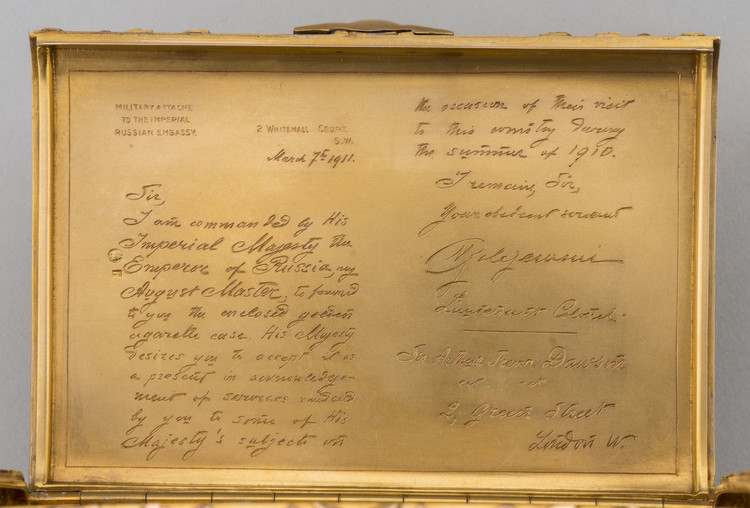 MILITARY ATTACHÉ
TO THE IMPERIAL
RUSSIAN EMBASSY.
2 WHITEHALL COURT,
S.W.
March 7th 1911.
Sir,
I am commanded by His
Imperial Majesty the
Emperor of Russia, my
August Master, to forward
to you the enclosed golden
cigarette case. His Majesty
desires you to accept it as
a present in acknowledge-
ment of services rendered
by you to some of His
Majesty's subjects on
the occasion of their visit
to this country during
the summer of 1910.
I remain, Sir,
Your obedient servant
Lieutenant Colonel.
Sir Arthur Trevor Dawson
2, Green Street
London W.